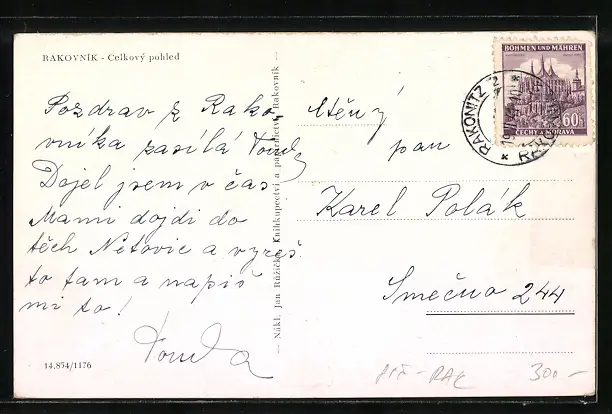 RAKOVNÍK - Celkový pohled
Pozdrav z Rako-
vníka zasílá Tonda
Dojel jsem v čas
Mami dojdi do
těch Netovic a vyřiš
to tam a napiš
mi to!
Tonda
14.854/1176
— Nákl. Jan Růžička, Knihkupectví a papírnictví, Rakovník —
BÖHMEN UND MÄHREN
60
ČECHY A MORAVA
RAKONITZ 2
Ctěný
pan
Karel Polák
Smečno 244
RAK
300-